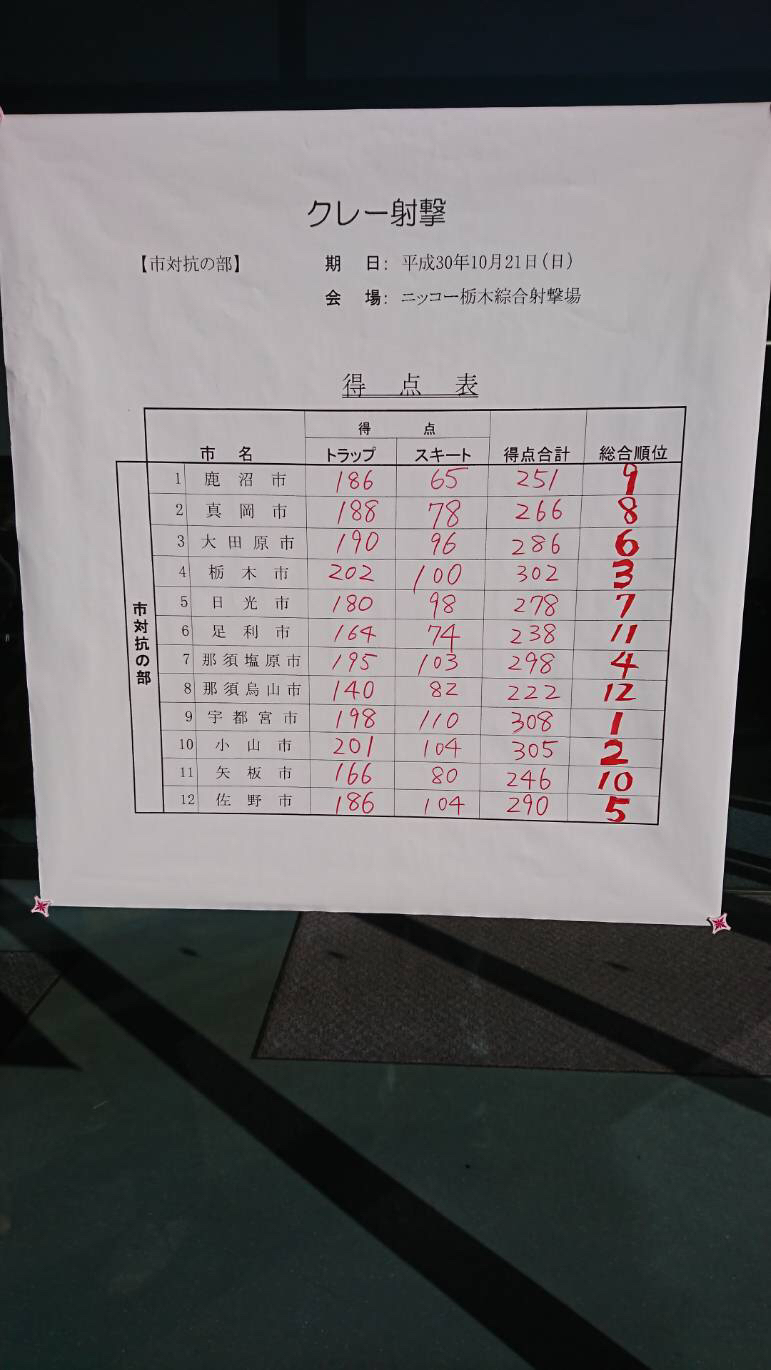 クレー射撃
【市対抗の部】 期 日: 平成30年10月21日(日)
会 場: ニッコー栃木綜合射撃場
得 点 表
市 名 得 点 得点合計 総合順位
トラップ スキート
市対抗の部
1 鹿沼市 186 65 251 9
2 真岡市 188 78 266 8
3 大田原市 190 96 286 6
4 栃木市 202 100 302 3
5 日光市 180 98 278 7
6 足利市 164 74 238 11
7 那須塩原市 195 103 298 4
8 那須烏山市 140 82 222 12
9 宇都宮市 198 110 308 1
10 小山市 201 104 305 2
11 矢板市 166 80 246 10
12 佐野市 186 104 290 5